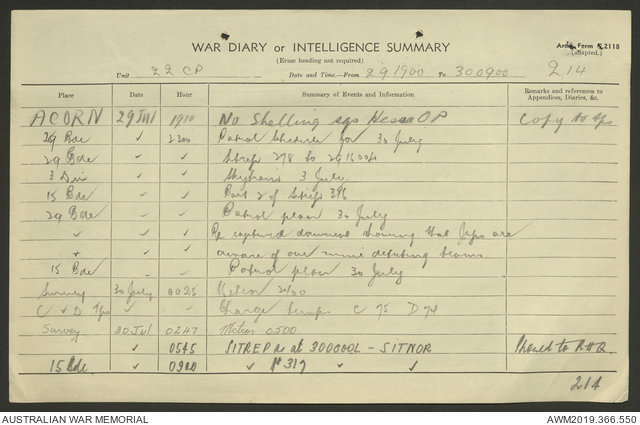 WAR DIARY or INTELLIGENCE SUMMARY
Army Form C2118
(Erase heading not required)
(adapted.)
Unit 22 CP Date and Time—From 291900 To 300900 214
Place Date Hour Summary of Events and Information Remarks and references to Appendices, Diaries, &c.
ACORN 29 Jul 1910 No Shelling OP Copy to
29 Bde ✓ 2200 Patrol Schedule for 30 July
29 Bde ✓ ✓ Sitrep 278 to
3 Div ✓ ✓ 3 July
15 Bde ✓ ✓ Part 2 of Sitrep 316
29 Bde ✓ ✓ Patrol plan 30 July
✓ ✓ ✓ Re captured document showing that Japs are
aware of our mine detecting teams
15 Bde Patrol plan 30 July
Survey 30 July 0025 Meteor 2400
C & D Tps ✓ ✓ Charge temps C 75 D 78
Survey 30 Jul 0247 Meteor 0300
✓ 0545 SITREP as at 300000L - SITNOR Phoned to RHQ
15 Bde ✓ 0900 ✓ No 317 ✓ ✓
214
AUSTRALIAN WAR MEMORIAL AWM2019.366.550